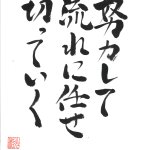 努力して
流れに任せ
切っていく